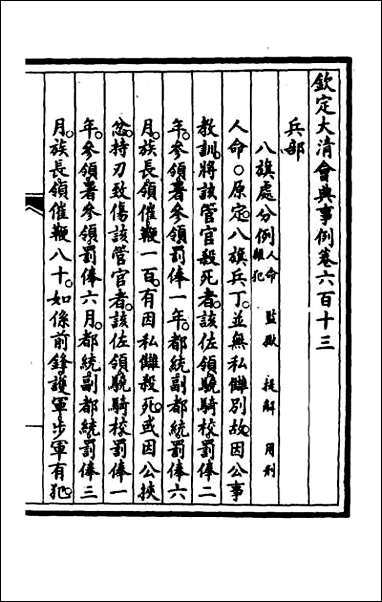 欽定大清會典事例卷六百十三
兵部
八旗處分例 人命 監獄 提解 用刑 雜犯
人命○原定八旗兵丁。並無私讎別故。因公事
教訓。將該管官殺死者。該佐領驍騎校罰俸二
年。參領署參領罰俸一年。都統副都統罰俸六
月。族長領催鞭一百。有因私讎殺死。或因公挾
忿。持刃致傷該管官者。該佐領驍騎校罰俸一
年。參領署參領罰俸六月。都統副都統罰俸三
月。族長領催鞭八十。如係前鋒護軍步軍有犯。